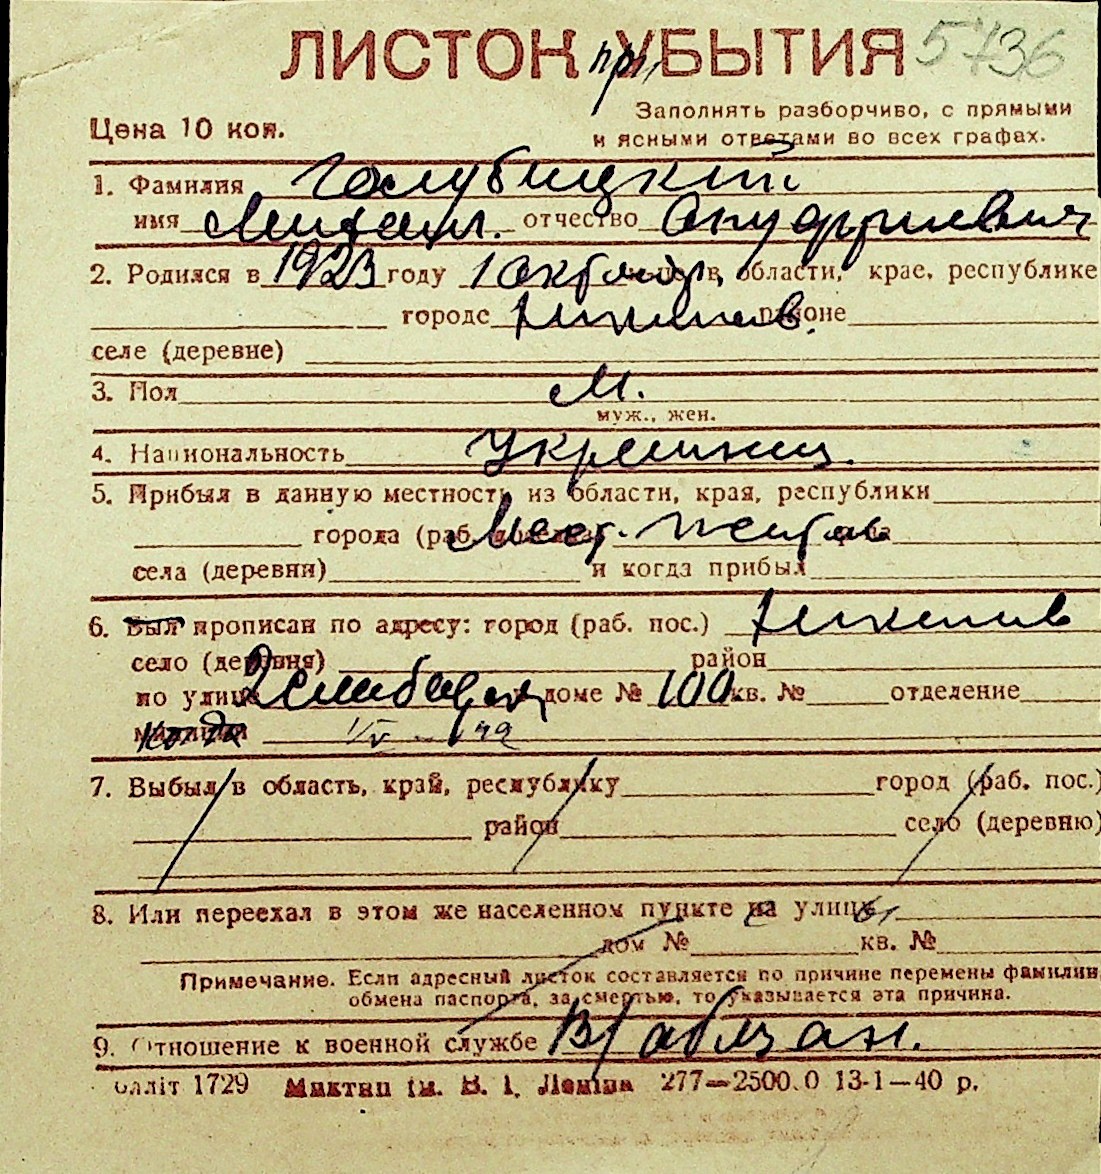 ЛИСТОК при УБЫТИЯ 5736
Цена 10 коп.
Заполнять разборчиво, с прямыми
и ясными ответами во всех графах.
1. Фамилия Голубицкий
имя Михаил. отчество Онуфриевич
2. Родился в 1923 году 1 октября, в области, крае, республике
городе Николаев. районе
селе (деревне)
3. Пол М.
муж., жен.
4. Национальность Украинец.
5. Прибыл в данную местность из области, края, республики
города (раб. Мест. житель
села (деревни) и когда прибыл
6. Был прописан по адресу: город (раб. пос.) Николаев
село (деревня) район
по улице доме № 100 кв. № отделение
милиции Когда
7. Выбыл в область, край, республику город (раб. пос.)
район село (деревню)
8. Или переехал в этом же населенном пункте на улицу
дом № кв. №
Примечание. Если адресный листок составляется по причине перемены фамилии
обмена паспорта, за смертью, то указывается эта причина.
9. Отношение к военной службе В/обязан.
оліт 1729 Миктип ім. В. І. Леніна 277—2500.0 13-1—40 р.